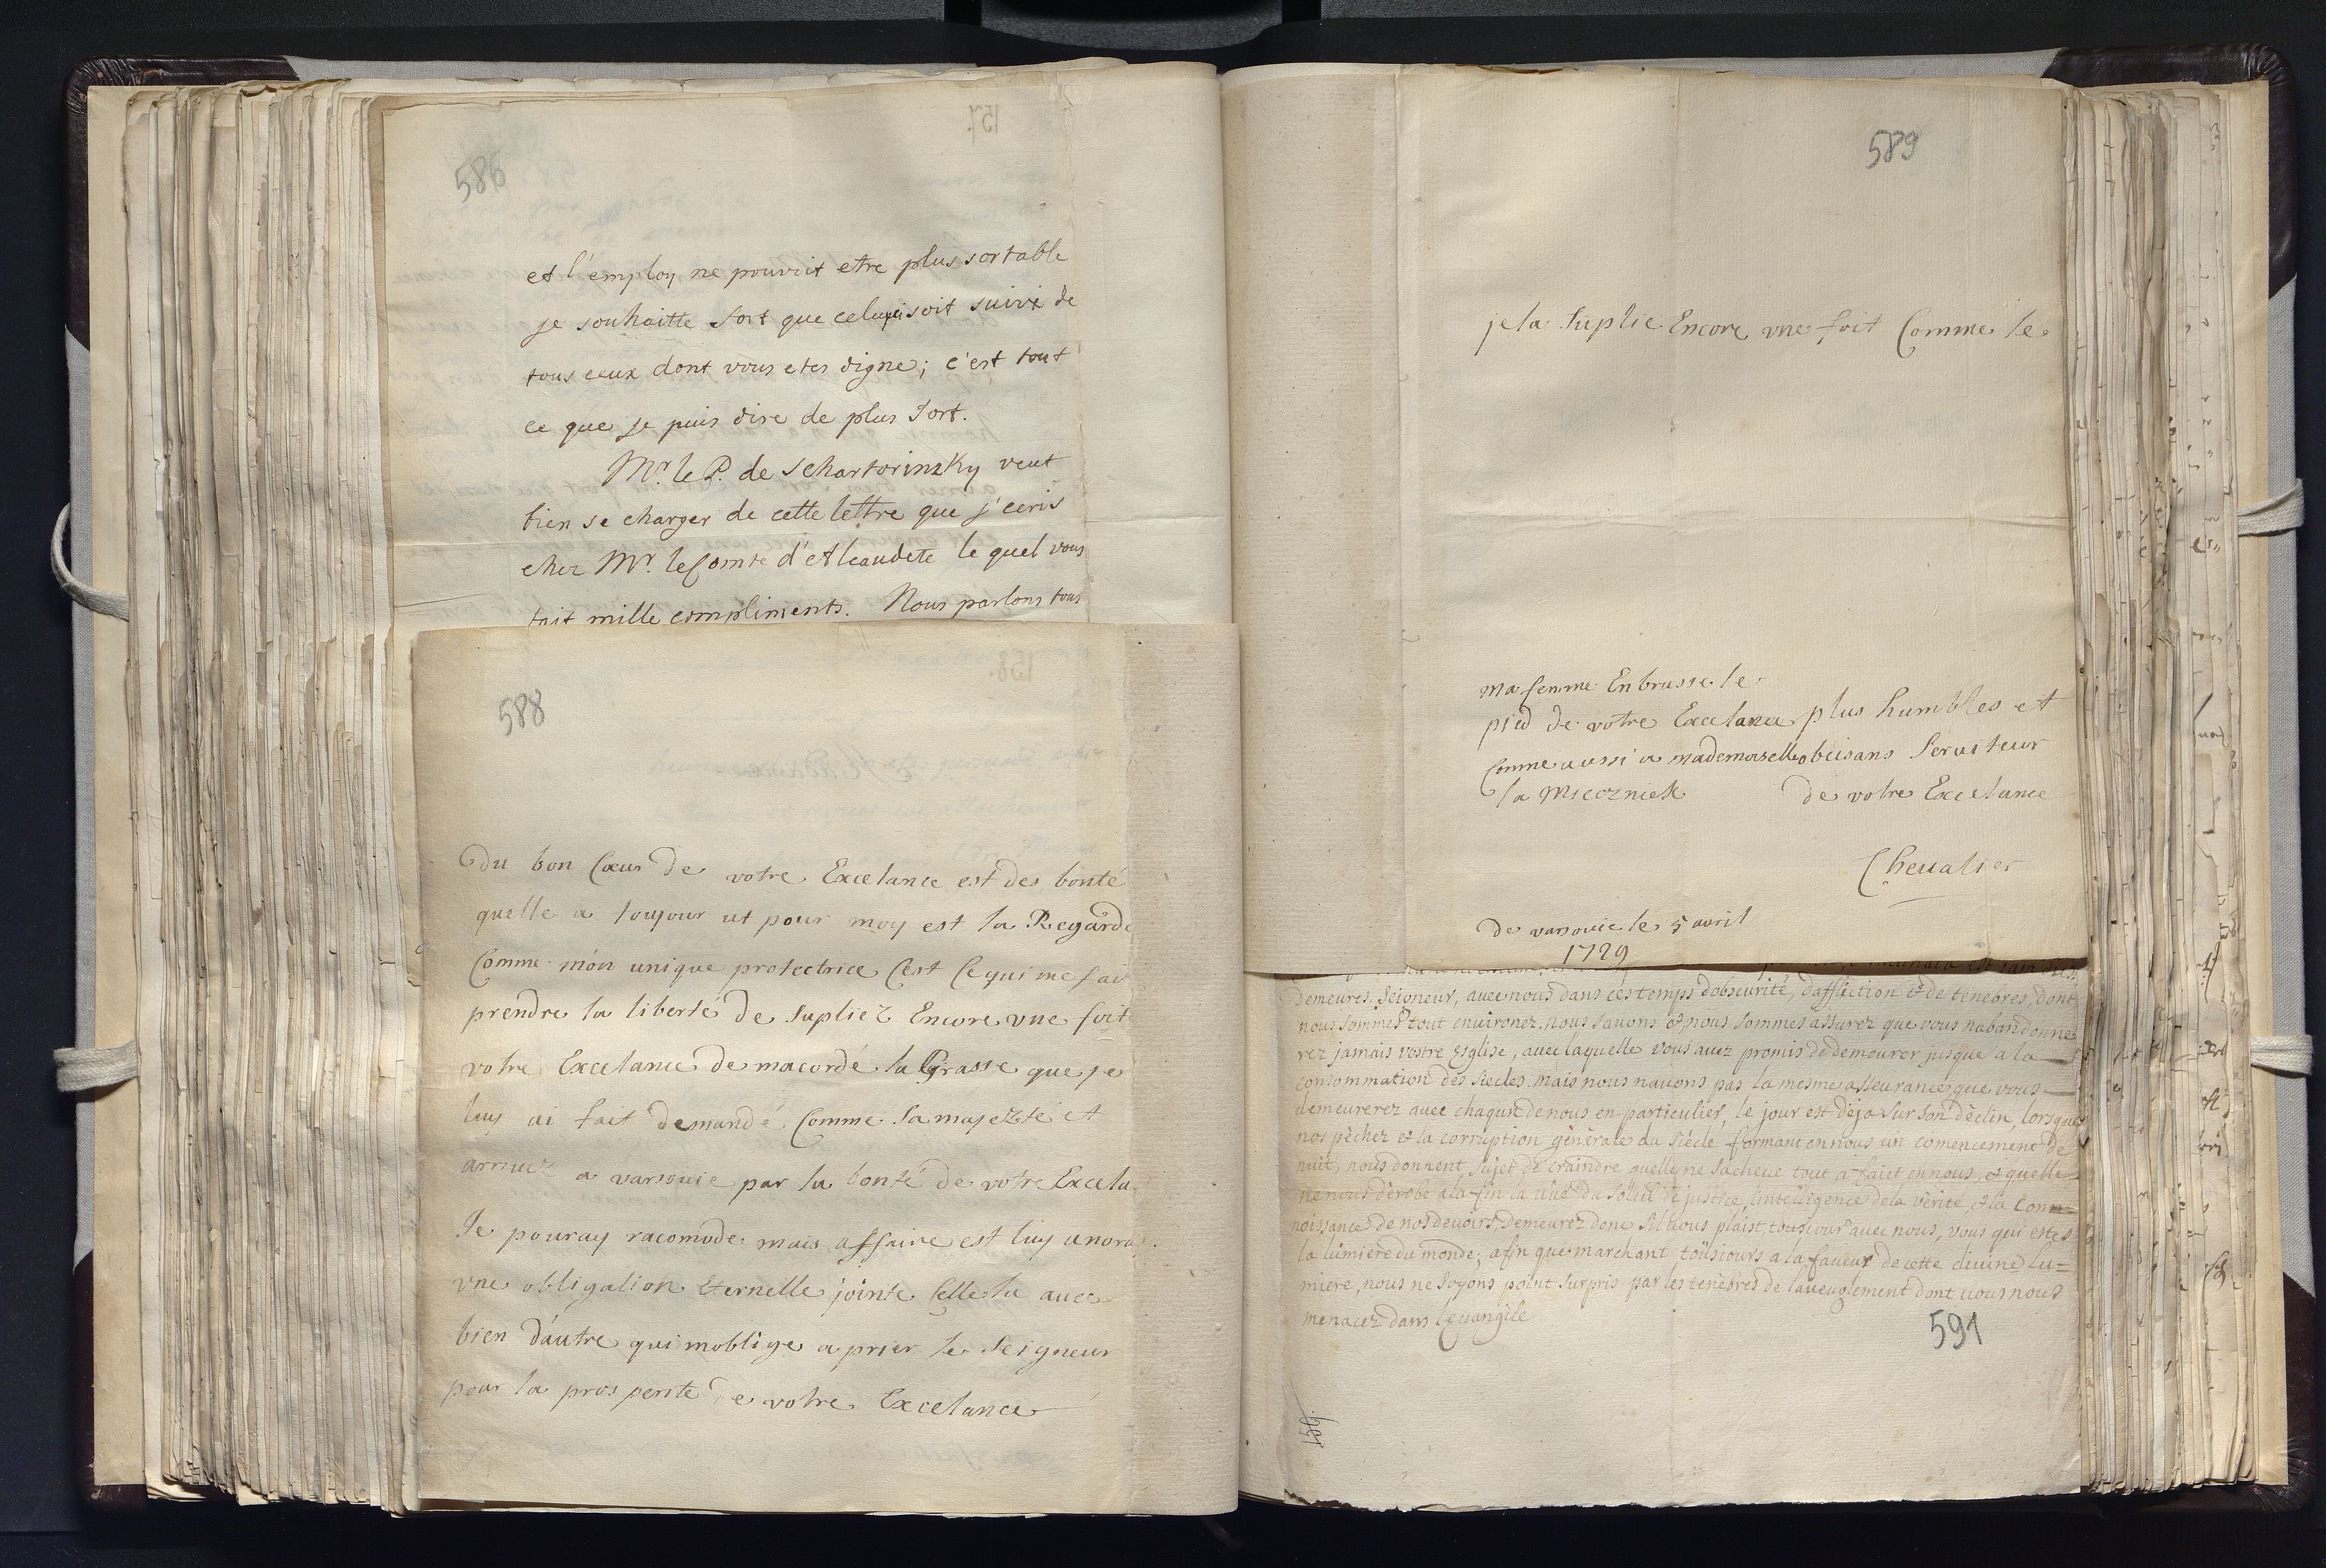 586
et l'employ ne pouvoit etre plus sortable
je souhaitte fort que celuyci soit suivi de
tous ceux dont vous etes digne; c'est tout
ce que je puis dire de plus fort.
Mr. le P. de Schartorinzky veut
bien se charger de cette lettre que j'ecris
chez Mr. le Comte d'Alcaudete le quel vous
fait mille compliments. Nous parlons tous
588
Du bon Cœur De votre Excelance est des bonté
quelle a toujour ut pour moy est la Regarde
Comme mon unique protectrice Cest Cequi me fai
prendre la liberté De Supliez Encore vne foit
votre Excelance De macordé la Grasse que je
luy ai fait Demandé Comme Sa majezté et
arriuez a varsouie par la bonté De votre Excela
Je pouray racomode mais affaire est luy anora
vne obligation Eternelle jointe Celle la avec
bien Dautre qui moblige a prier le Seigneur
pour la prosperité De votre Excelance
589
je la Suplie Encore vne foit Comme le
ma femme Enbrasse le
pied De votre Excelance plus humbles et
Comme aussi a mademoiselle obeisans Seruiteur
la Miecznick De votre Excelance
Cheualier
De varsouie le 5 avril
1729
demeures, Seigneur, auec nous dans ces temps dobscurité, daffliction et de tenebres, dont
nous sommes tout enuironez. nous sauons et nous sommes assurez que vous nabandonne
rez jamais vostre Esglise, auec laquelle vous auez promis de demeurer jusque a la
consommation des siecles. mais nous nauons pas la mesme asseurance que vous
demeurerez auec chaqun de nous en particulier, le jour est deja sur son déclin, lorsque
nos pèchez et la corruption générale du siécle formant en nous un comencement de
nuit, nous donnent sujet de craindre quelle ne sacheue tout a faict en nous, et quelle
ne nous dérobe a la fin la vüe du Soleil de justice, lintelligence de la vérité, et la Con=
noissance de nos deuoirs, Demeurez donc sil vous plaist, tousiour auec nous, vous qui estes
la lumiere du monde; afin que marchant tousiours a la faueur de cette diuine lu=
miere, nous ne soyons point surpris par les tenebres de laueuglement dont vous nous
menacez dans leuangile
591
159.